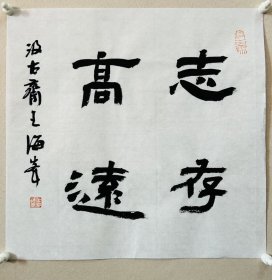 志存
高遠
汲古齋王海峯